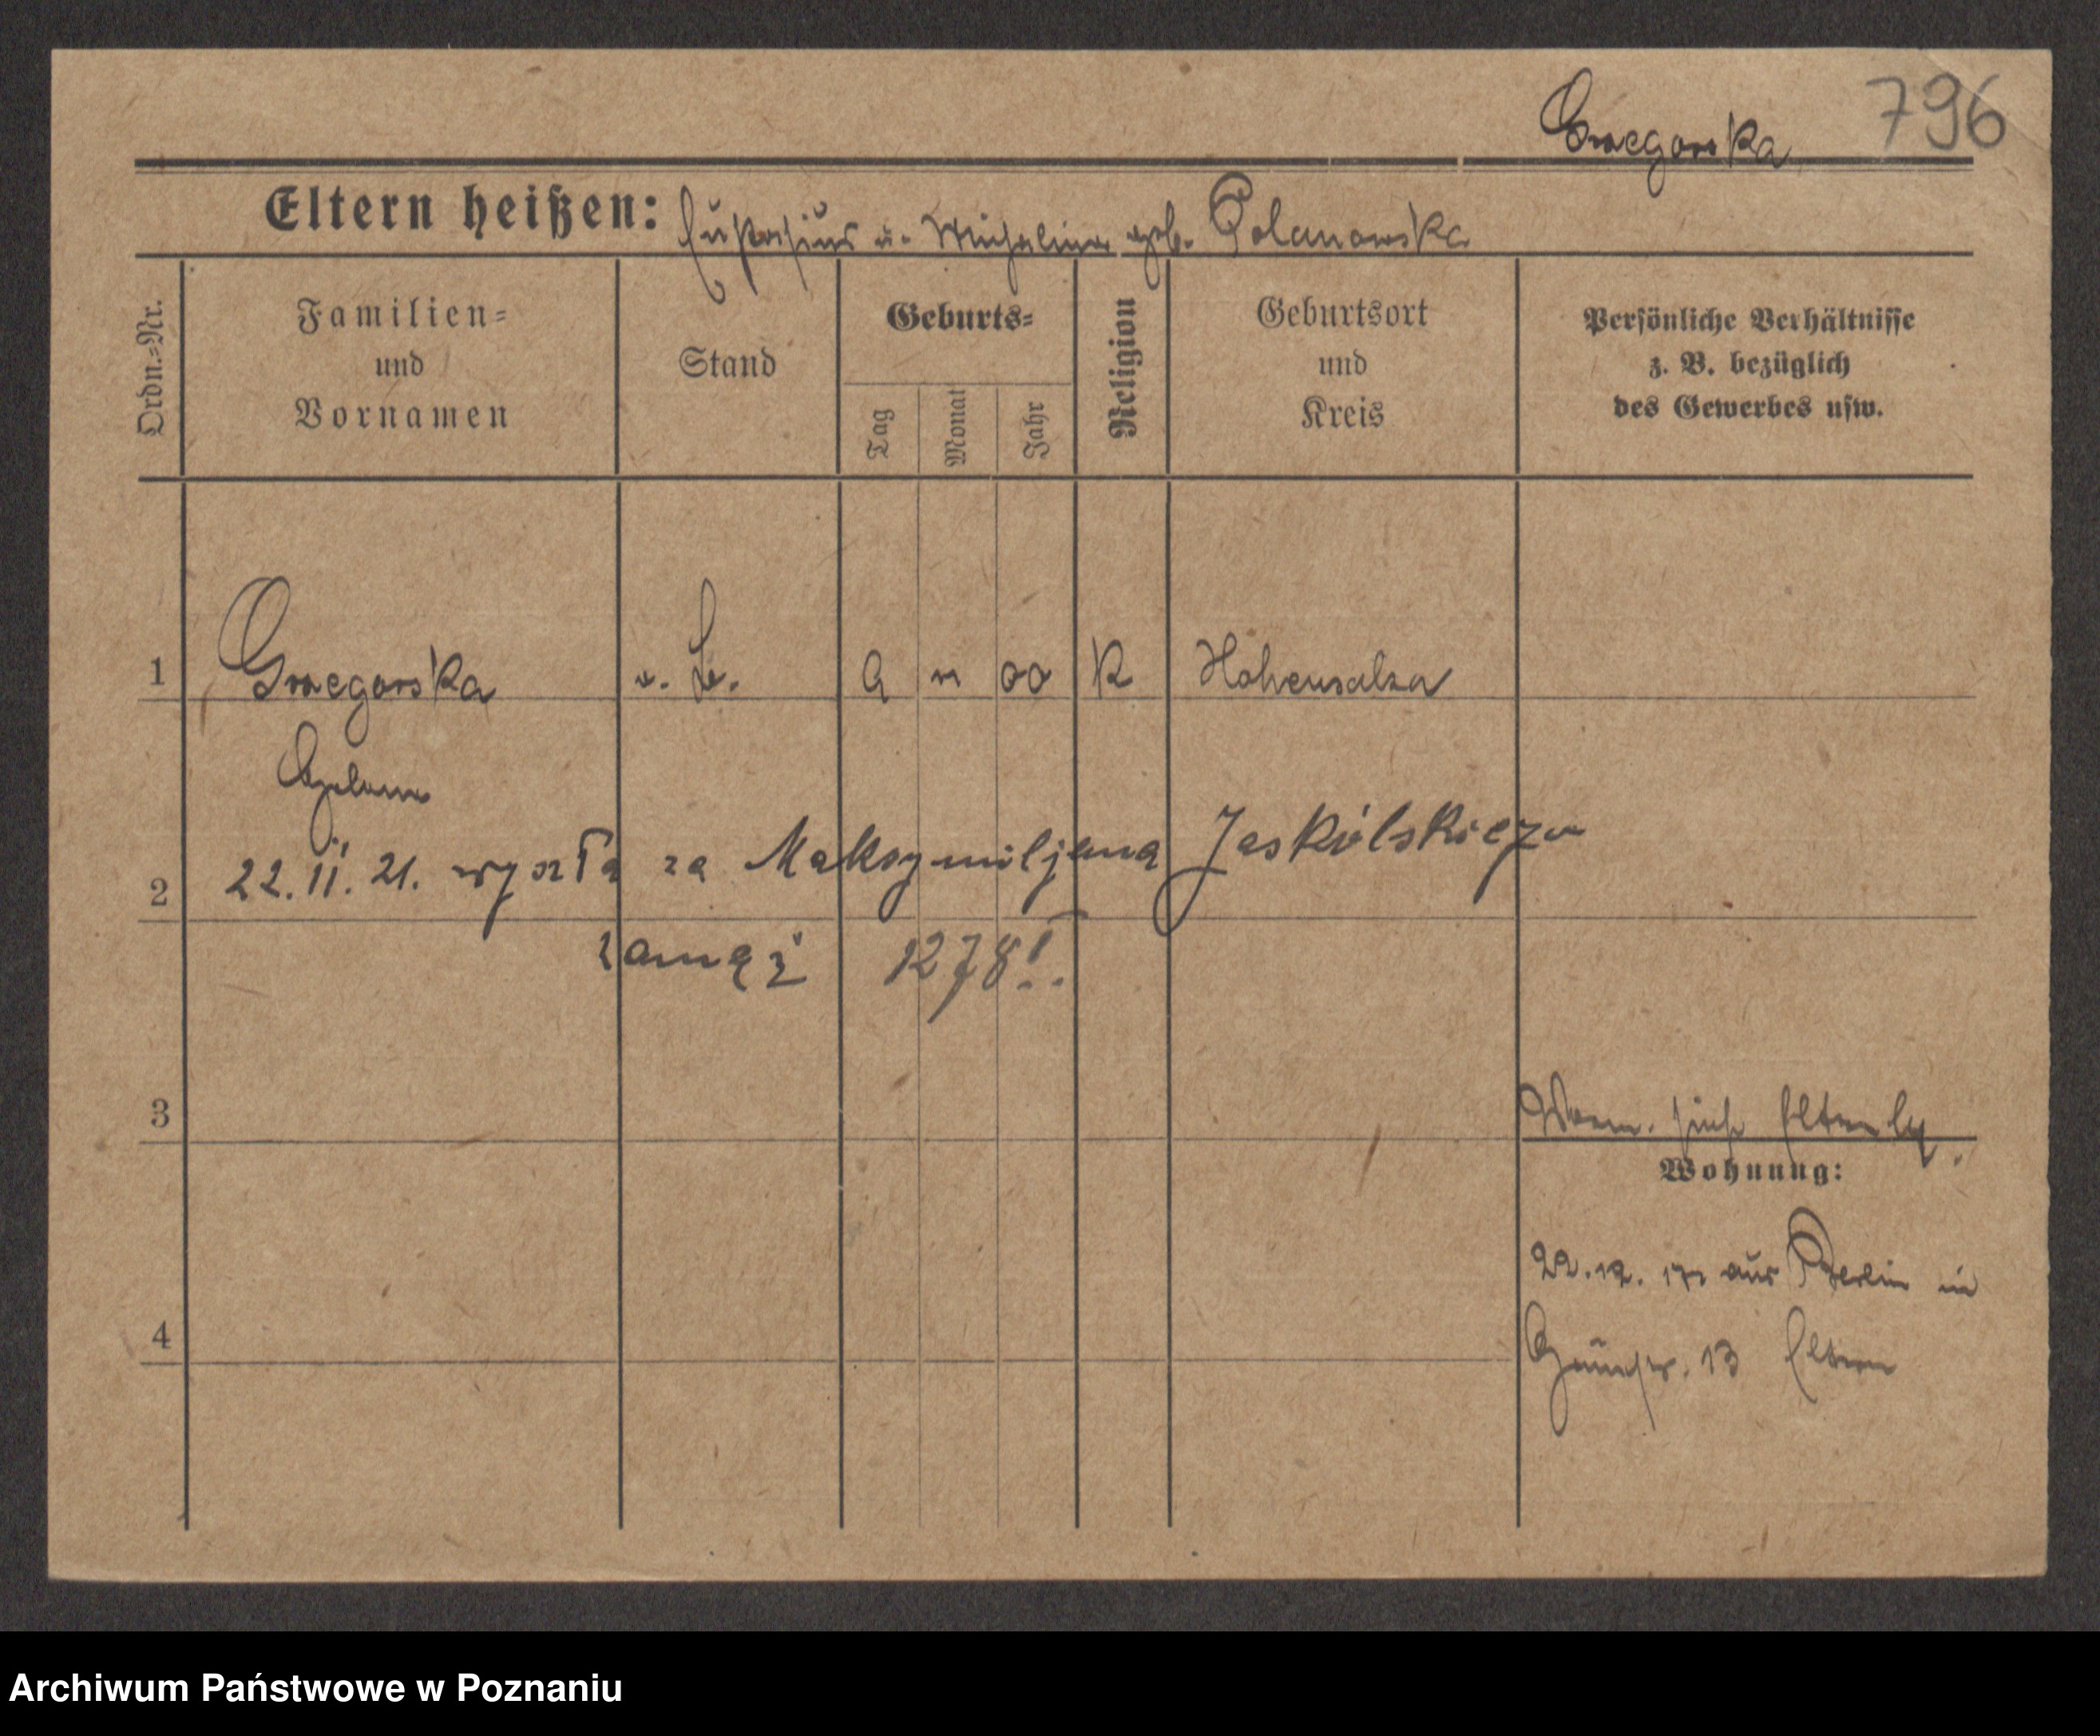 Grzegorska 796
Eltern heißen: u. geb. Polanowska
Ordn.=Nr.
Familien=
und
Vornamen
Stand
Geburts=
Tag
Monat
Jahr
Religion
Geburtsort
und
Kreis
Persönliche Verhältnisse
z. B. bezüglich
des Gewerbes usw.
1 Grzegorska 9 00 K Hohensalza
2 22. II. 21. wyszła za Maksymiljana Jaskólskiego
zamąż 1278!..
3
Wohnung:
22.12. aus Berlin in
4 13 Eltern
Archiwum Państwowe w Poznaniu